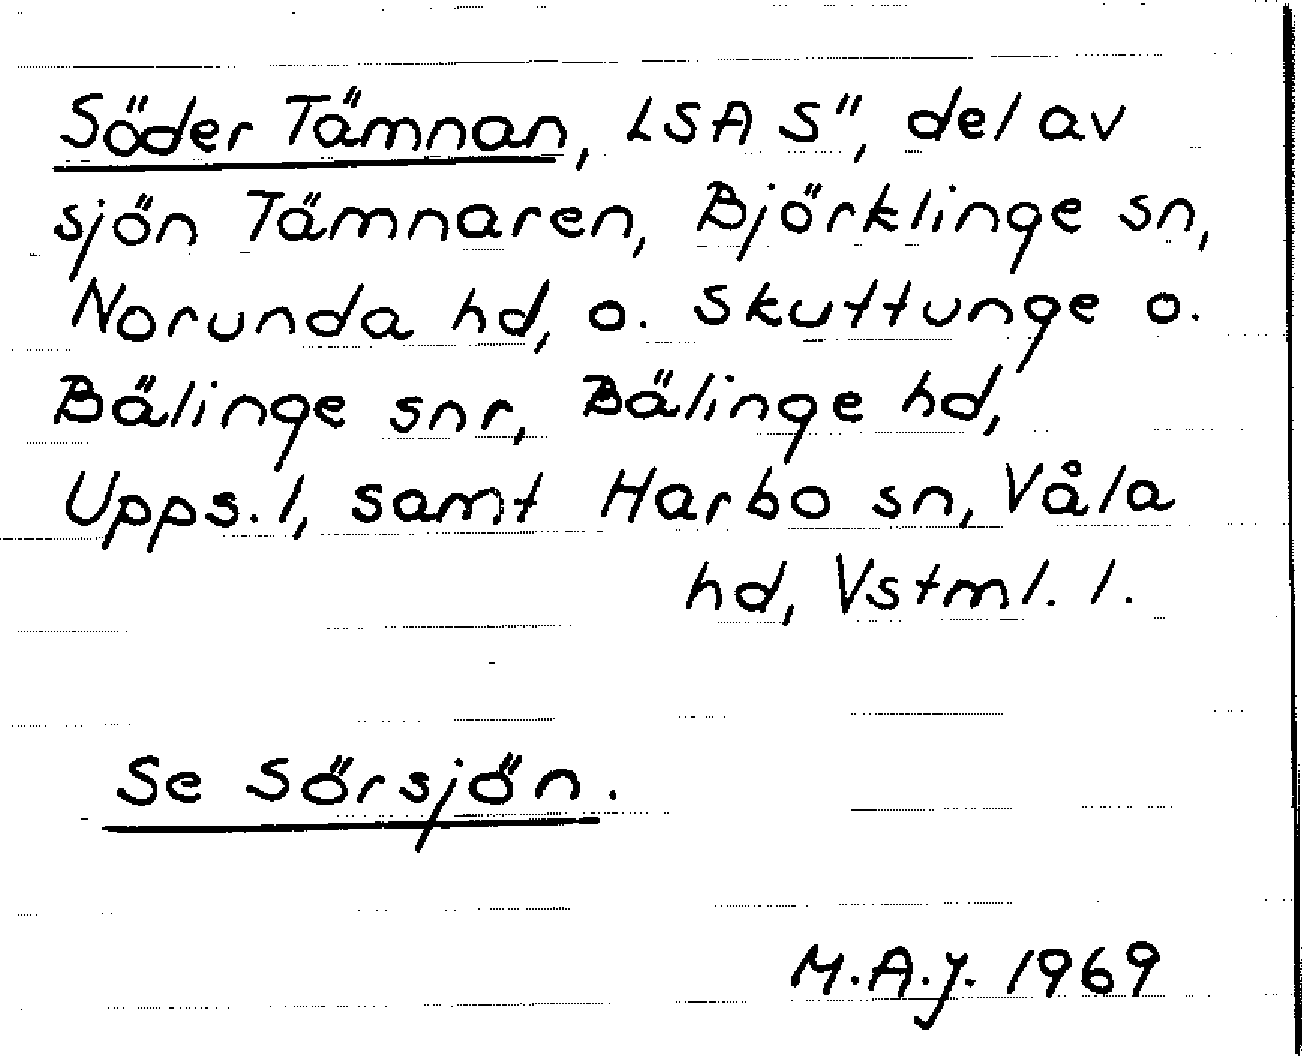 Söder Tämnan, LSA S", del av
sjön Tämnaren, Björklinge sn,
Norunda hd, o. Skuttunge o.
Bälinge snr, Bälinge hd,
Upps. l, samt Harbo sn, Våla
hd, Vstml. l.
Se Sörsjön.
M.A.J. 1969